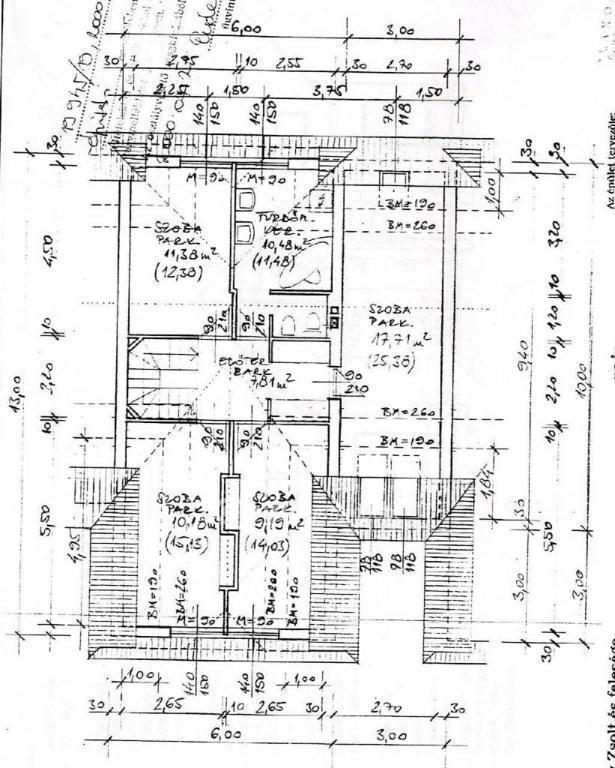 6,00
3,00
30
2,75
10
2,55
30
2,70
30
2,25
1,50
3,75
1,50
140
150
140
150
78
118
M=90
M=90
BM=190
BM=260
1,00
30
4,50
10
2,20
10
5,50
13,00
4,95
30
SZOBA
PARK.
11,38 m²
(12,38)
10,48 m²
(11,48)
SZOBA
PARK.
17,71 m²
(25,38)
90
210
90
210
ELŐTÉR
PARK
7,81 m²
90
210
BM=260
BM=190
90
210
90
210
SZOBA
PARK.
10,18 m²
(15,13)
SZOBA
PARK.
9,19 m²
(14,03)
BM=190
BM=260
BM=260
BM=190
M=90
M=90
78
118
78
118
30
30
3,20
10
1,20
10
2,20
10
5,50
30
9,40
10,00
1,84
30
3,00
3,00
1,00
140
150
140
150
1,00
30
2,65
10
2,65
30
2,70
30
6,00
3,00
Az épület tervezője:
Zsolt és felesége